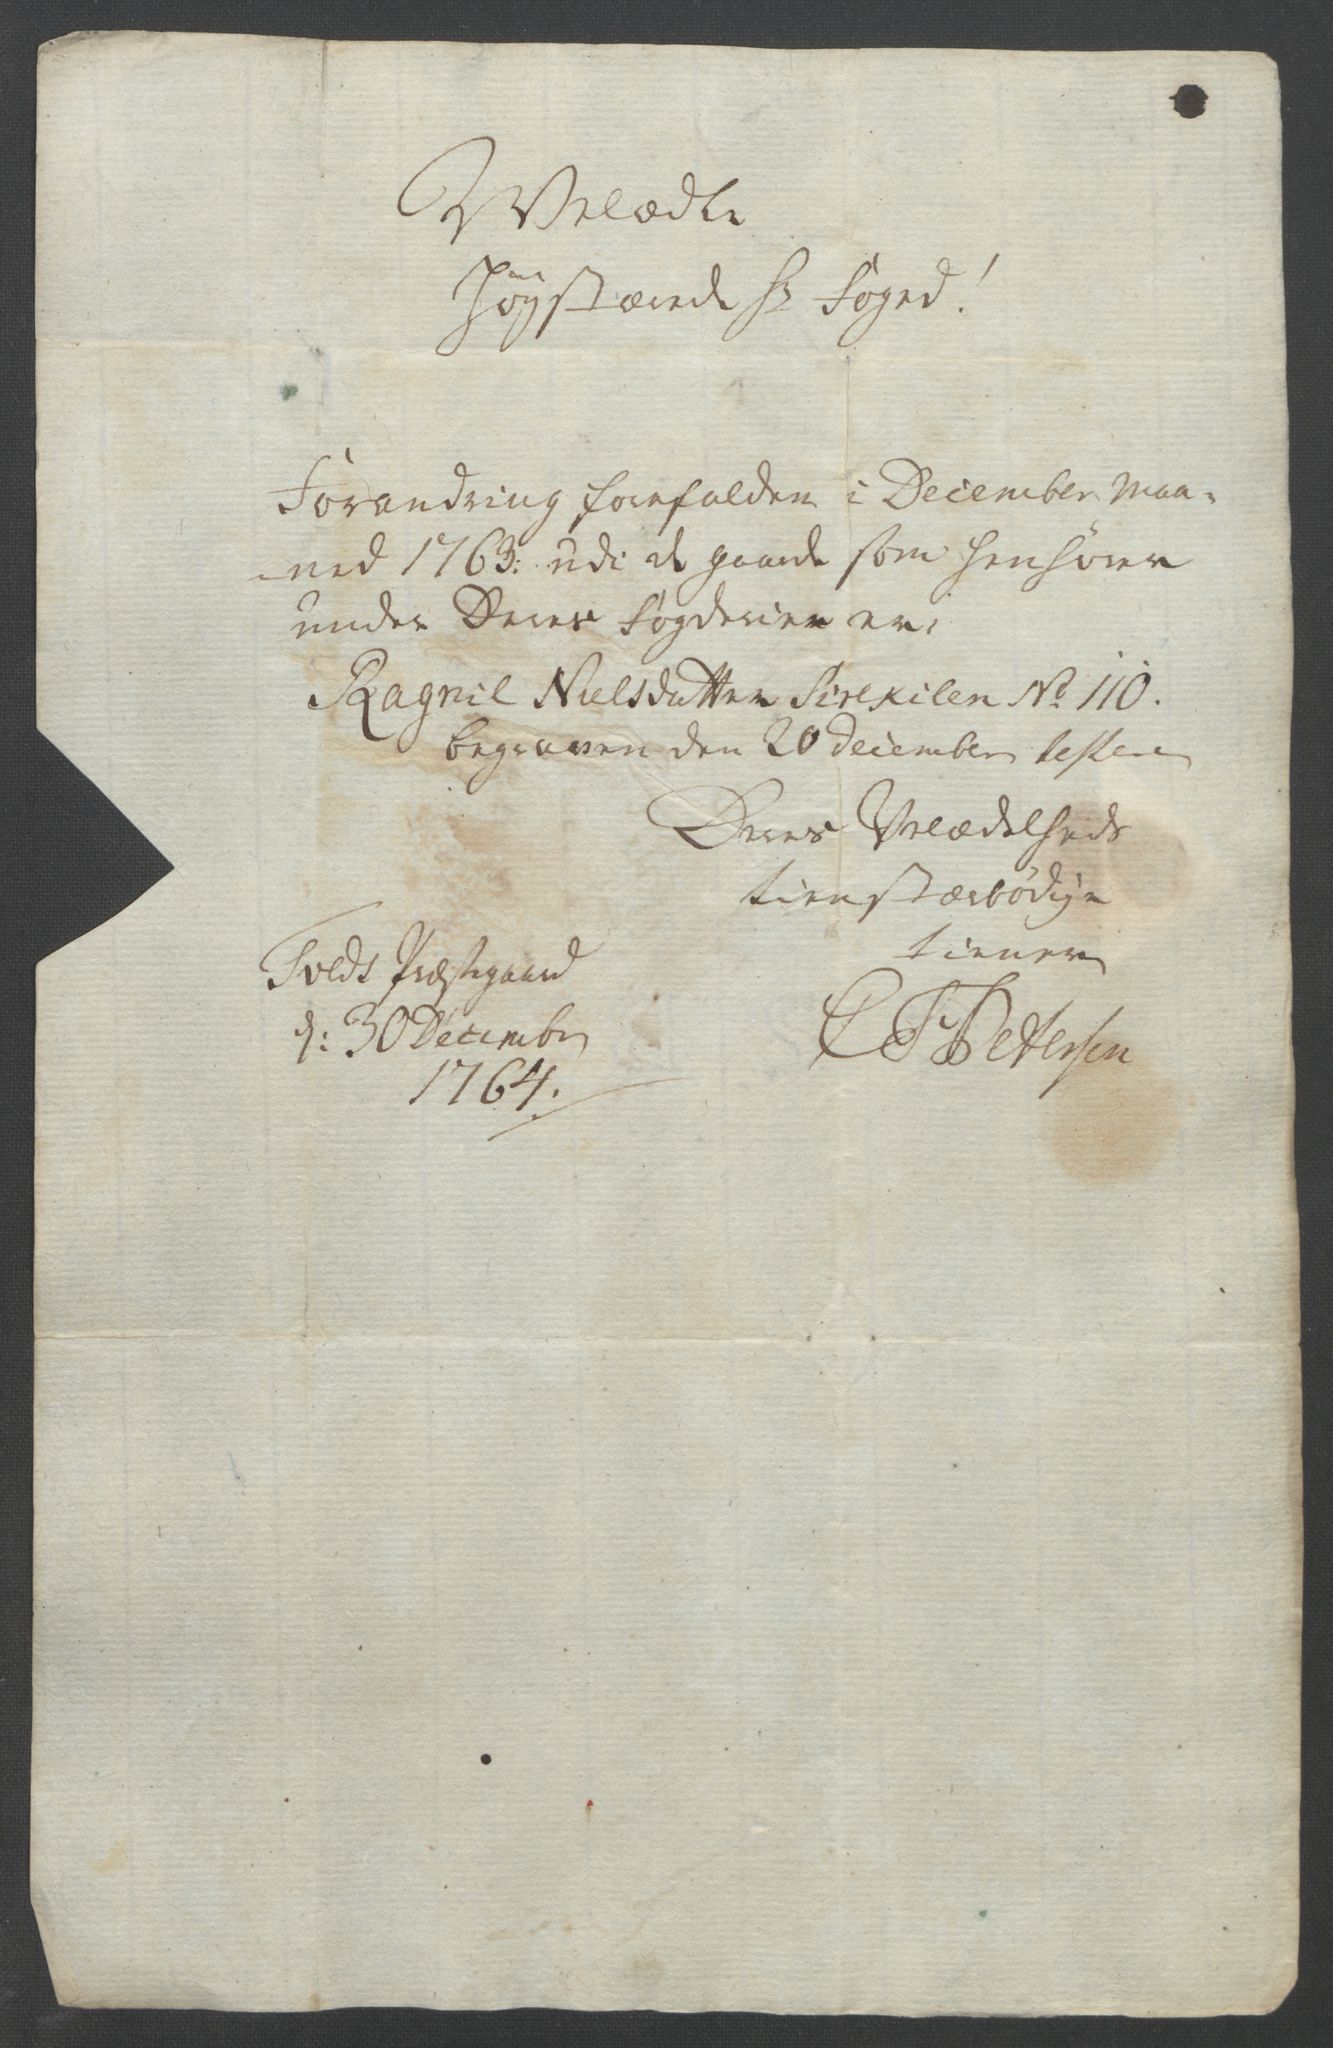 Velædle
Høystærede Hr Foged!
Forandring forefalden i December Maa-
ned 1763: udi de gaarde som henhører
under Deres Fogderier er,
Ragnil Nielsdatter Sirekilen No 110.
begraven den 20 December
Deres Velædelheds
tienstærbødige
tiener
C F Petersen
Præstegaard
d: 30 December
1764.